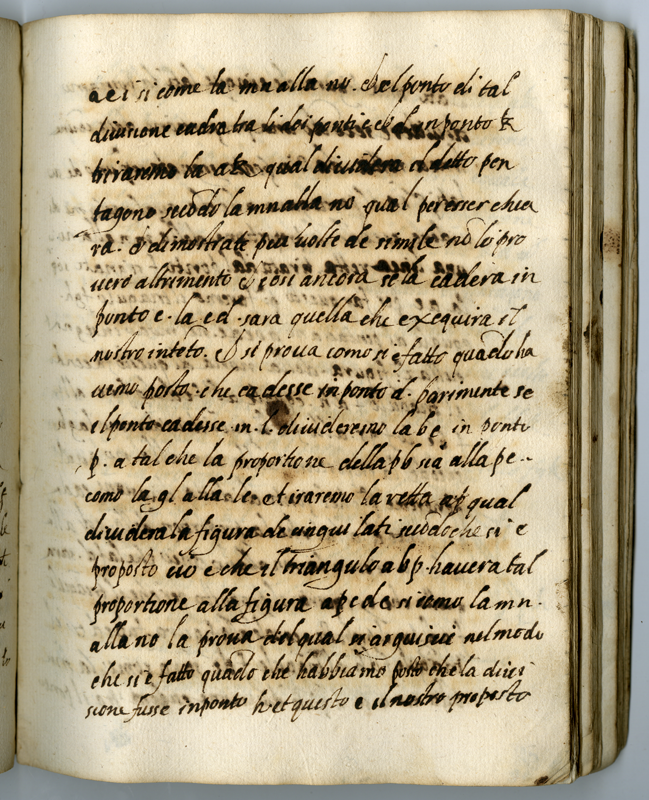 a e i si come la m n alla no. ch'el ponto di tal
divisione cadra tra li doi ponti e et d. in ponto k
tiriremo la a k qual dividera el detto pen
tagono secōdo la m n alla no qual per esser chia
ra. et dimostrate piu volte de simile nō lo pro
vero altrimento et cosi ancora se la cadera in
ponto e. la e d. sara quella che exequira il
nostro intēto. et si prova como si e fatto quādo ha
vemo posto che cadesse in ponto d. parimente se
il ponto cadesse in. l. divideremo la b e in ponto
p. a tal che la proportione della p b sia alla p e.
como la g l alla l e. et tiraremo la retta a p qual
dividera la figura de cinqui lati secōdo che si e
proposto cio e che il triangulo a b p. havera tal
proportione alla figura a p c d e si como la m n.
alla no la prova del qual si arguisce nel modo
che si e fatto quādo che habbiamo posto che la divi
sione fusse in ponto h et questo e il nostro proposto